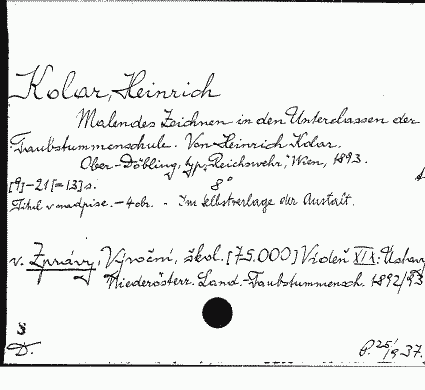 Kolar, Heinrich
Malendes Zeichnen in den Unterclassen der
Taubstummenschule. Von Heinrich Kolar.
Ober-Döbling, typ. "Reichswehr", Wien, 1893.
[9]-21[=13]s. 8°
Titul v nadpise. - 4 obr. - Im Selbstverlage der Anstalt.
v. Zprávy, Výroční, škol. [75.000] Vídeň XIX: Ústavy
Niederösterr. Land.-Taubstummensch. 1892/93
D.
P. 25/9 37.